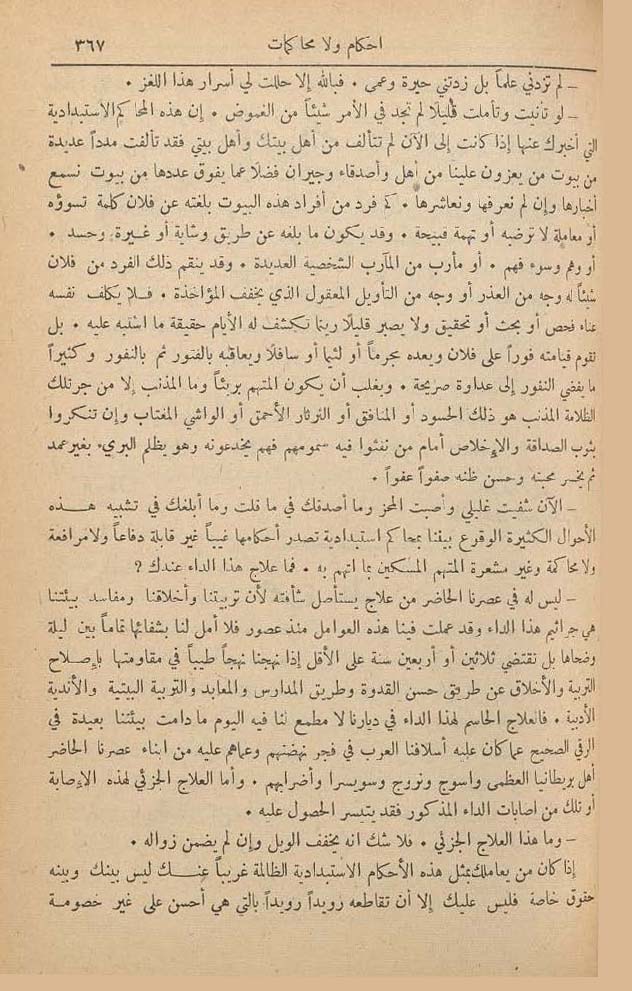 احكام ولا محاكمات ٣٦٧
– لم تزدني علماً بل زدتني حيرة وعمى • فبالله إلا حللت لي أسرار هذا اللغز •
– لو تأنيت وتأملت قليلا لم تجد في الأمر شيئاً من الغموض • إن هذه المحاكم الاستبدادية
التي أخبرك عنها إذا كانت إلى الآن لم تتألف من أهل بيتك وأهل بيتي فقد تألفت مدداً عديدة
من بيوت من يعزون علينا من أهل وأصدقاء وجيران فضلا عما يفوق عددها من بيوت نسمع
أخبارها وإن لم نعرفها ونعاشرها • كم فرد من أفراد هذه البيوت بلغته عن فلان كلمة تسوؤه
أو معاملة لا ترضيه أو تهمة قبيحة • وقد يكون ما بلغه عن طريق وشاية أو غيرة وحسد •
أو وهم وسوء فهم • أو مأرب من المآرب الشخصية العديدة • وقد ينقم ذلك الفرد من فلان
شيئاً له وجه من العذر أو وجه من التأويل المعقول الذي يخفف المؤاخذة • فلا يكلف نفسه
عناء فحص أو بحث أو تحقيق ولا يصبر قليلا ريثما تكشف له الأيام حقيقة ما اشتبه عليه • بل
تقوم قيامته فوراً على فلان ويعده مجرماً أو لئيما أو سافلا ويعاقبه بالفتور ثم بالنفور وكثيراً
ما يفضي النفور إلى عداوة صريحة • ويغلب أن يكون المتهم بريئاً وما المذنب إلا من جر تلك
الظلامة المذنب هو ذلك الحسود أو المنافق أو الثرثار الأحمق أو الواشي المغتاب وإن تنكروا
بثوب الصداقة والإخلاص أمام من نفثوا فيه سمومهم فهم يخدعونه وهو يظلم البريء بغير عمد
ثم يخسر محبته وحسن ظنه صفواً عفواً •
– الآن شفيت غليلي وأصبت المحز وما أصدقك في ما قلت وما أبلغك في تشبيه هذه
الأحوال الكثيرة الوقوع بيننا بمحاكم استبدادية تصدر أحكامها غيباً غير قابلة دفاعاً ولا مرافعة
ولا محاكمة وغير مشعرة المتهم المسكين بما اتهم به • فما علاج هذا الداء عندك ؟
– ليس له في عصرنا الحاضر من علاج يستأصل شأفته لأن تربيتنا وأخلاقنا ومفاسد بيئتنا
هي جراثيم هذا الداء وقد عملت فينا هذه العوامل منذ عصور فلا أمل لنا بشفائها تماماً بين ليلة
وضحاها بل نقتضي ثلاثين أو أربعين سنة على الأقل إذا نهجنا نهجاً طيباً في مقاومتها بإصلاح
التربية والأخلاق عن طريق حسن القدوة وطريق المدارس والمعابد والتربية البيتية والأندية
الأدبية • فالعلاج الحاسم لهذا الداء في ديارنا لا مطمع لنا فيه اليوم ما دامت بيئتنا بعيدة في
الرقي الصحيح عما كان عليه أسلافنا العرب في فجر نهضتهم وعما هم عليه من ابناء عصرنا الحاضر
أهل بريطانيا العظمى واسوج ونروج وسويسرا وأضرابهم • وأما العلاج الجزئي لهذه الإصابة
أو تلك من اصابات الداء المذكور فقد يتيسر الحصول عليه •
– وما هذا العلاج الجزئي • فلا شك انه يخفف الويل وإن لم يضمن زواله •
إذا كان من يعاملك بمثل هذه الأحكام الاستبدادية الظالمة غريباً عنك ليس بينك وبينه
حقوق خاصة فليس عليك إلا أن تقاطعه رويداً رويداً بالتي هي أحسن على غير خصومة